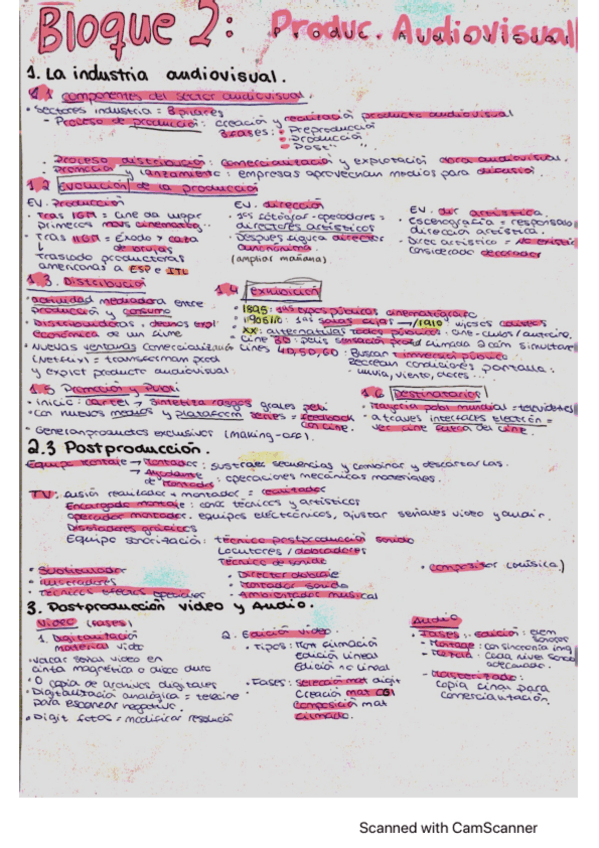 Bloque 2: Produc. Audiovisual
1. La industria audiovisual.
1.1 componentes del sector audiovisual.
• Sectores industria = 3 pilares
- Proceso de producción: creación y realización producto audiovisual
3 fases: • Preproducción
• Producción
• Post " "
- Proceso distribución: comercialización y explotación obra audiovisual.
- Promoción y lanzamiento: empresas aprovechan medios para difusión
1.2 Evolución de la producción
EV. Producción
• Tras IGM = cine da mayor
primeros
• Tras IIGM = Éxodo y caza
de brujas
↓
Traslado productoras
americanas a ESP e ITL
EV. dirección
• 1os fotógraf-operadores =
directores artísticos
• Después figura director
autónomo
(ampliar mañana)
EV. dir artística.
• Escenografía = responsable
dirección artística.
• Direc artístico = no existía
considerado decorador
1.3. Distribución
• actividad mediadora entre
producción y consumo
• Distribuidoras, dcnos expl
económica de un filme
• Nuevas ventanas comercialización
(Netflix) = transforman prod
y explot producto audiovisual
1.4 Exhibición
• 1895: 1os cinematógrafo
1as salas fijas → 1910
• XX: alternativas todos públicos: cine-clubs / autocine.
• Cine 30: pelis filmada 2 cam
• Cines 40, 50, 60: Buscar inmersión público
Recrean condiciones pantalla:
lluvia, viento, olores...
1.5 Promoción y Publi
• inicio: cartel → sintetiza rasgos grales peli
• con nuevos medios y plataform = feedback
con cine.
• Generan productos exclusivos (making-ofs).
1.6 Destinatarios
• Mayoría pobl mundial = televidentes
• a través interfaces electrón =
ver cine fuera del cine.
2.3 Postproducción.
Equipo montaje → Montador: sustrae secuencias y combinar y descartarlas.
→ Ayudante
de montador: operaciones mecánicas materiales.
TV: fusión realizador + montador = realizador
Encargado montaje: conoc técnicos y artísticos
operador montador: equipos electrónicos, ajustar señales video y audio.
Diseñadores gráficos
Equipo sonorización: técnico postproducción sonido
Locutores / dobladores
Técnico de sonido
• Subtitulador
• ilustradores
• Técnicos efectos especiales
• Director doblaje
• Montador sonido
• Ambientador musical
• compositor (música)
3. Postproducción video y Audio.
Video (fases)
1. Digitalización
material video
• Volcar señal video en
cinta magnética o disco duro
• O copia de archivos digitales
• Digitalización analógica = telecine
para escanear negativo.
• Digit fotos = modificar resoluci
2. Edición video
• Tipos: Non filmación
Edición lineal
Edición no lineal
• Fases: Selección mat digit
Creación mat CGI
Composición mat
filmado.
Audio
• Fases: edición:
• Montaje: con sincronía img
• Mezcla: cada nivel sonoro
adecuado.
• Masterizado:
copia final para
comercialización.
Scanned with CamScanner